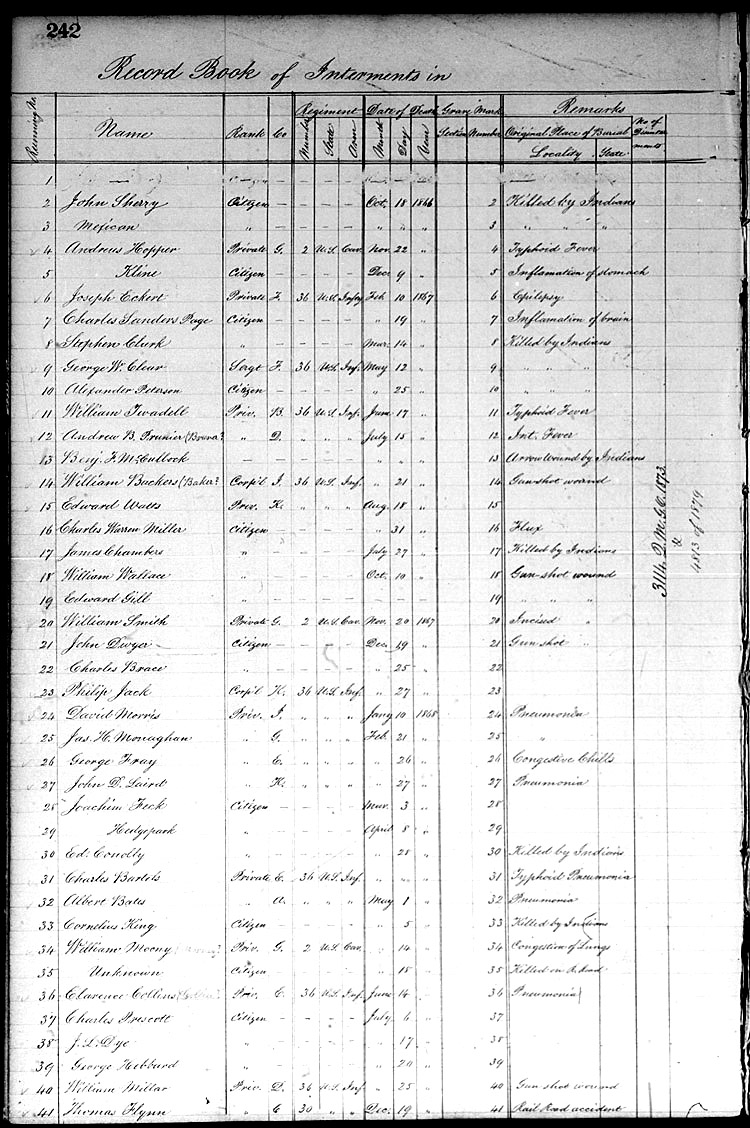 242
Record Book of Interments in
Running No. Name Rank Co Regiment Date of Death Grave Mark Remarks
Number State Arm Month Day Year Section Number Original Place of Burial No. of
Locality State
1
2 John Sherry Citizen — — — — Oct. 18 1866 2 Killed by Indians
3 Mexican " — — — — " " " 3 " " "
4 Andreus Hopper Private G. 2 U.S. Cav. Nov. 22 " 4 Typhoid Fever
5 Kline Citizen — — — — Dec. 9 " 5 Inflamation of stomach
6 Joseph Eckert Private F. 36 U.S. Infy Feb. 10 1867 6 Epilepsy
7 Charles Sanders Page Citizen — — — — " 19 " 7 Inflamation of brain
8 Stephen Clark " — — — — Mar. 14 " 8 Killed by Indians
9 George W. Clear Sergt F. 36 U.S. Inf. May 12 " 9 " " "
10 Alexander Peterson Citizen — — — — " 25 " 10 " " "
11 William Twadell Priv. B. 36 U.S. Inf. June 17 " 11 Typhoid Fever
12 Andrew B. Prunier " D. " " " July 15 " 12 Int. Fever
13 Benj. F. McCullock — — — — — " " " 13 Arrow wound by Indians
14 William Buckers (Baker? Corp'l I. 36 U.S. Inf. " 21 " 14 Gun-shot wound
15 Edward Watts Priv. K. " " " Aug. 18 " 15
16 Charles Warren Miller Citizen — — — — " 31 " 16 Flux
17 James Chambers " — — — — July 27 " 17 Killed by Indians
18 William Wallace " — — — — Oct. 10 " 18 Gun-shot wound
19 Edward Gill " — — — — " " " 19 " " "
20 William Smith Private G. 2 U.S. Cav. Nov. 20 1867 20 Incised "
21 John Dwyer — Citizen — — — — Dec. 19 " 21 Gun-shot "
22 Charles Brace " — — — — " 25 " 22
23 Philip Jack Corp'l K. 36 U.S. Inf. " 27 " 23
24 David Morris Priv. I. " " " Jany 10 1868 24 Pneumonia
25 Jas. H. Monaghan " G. " " " Feb. 21 " 25 "
26 George Fray " E. " " " " 26 " 26 Congestive Chills
27 John D. Laird " K. " " " " 27 " 27 Pneumonia
28 Joachim Feck Citizen — — — — Mar. 3 " 28
29 Hedgepark " — — — — April 8 " 29
30 Ed. Conolly " — — — — " 28 " 30 Killed by Indians
31 Charles Bartels Private E. 36 U.S. Inf. " " " 31 Typhoid Pneumonia
32 Albert Bates " A. " " " May 1 " 32 Pneumonia
33 Cornelius King Citizen — — — — " 5 " 33 Killed by Indians
34 William Moony Priv. G. 2 U.S. Cav. " 14 " 34 Congestion of Lungs
35 Unknown Citizen — — — — " 18 " 35 Killed on R. Road
36 Clarence Collins Priv. C. 36 U.S. Inf. June 14 " 36 Pneumonia
37 Charles Prescott Citizen — — — — July 6 " 37
38 J. L. Dye " — — — — " 17 " 38
39 George Hebbard " — — — — " 20 " 39
40 William Millar Priv. D. 36 U.S. Inf. " 25 " 40 Gun shot wound
41 Thomas Flynn " E 30 " " Dec. 19 " 41 Rail Road accident
3114. Q.M.G.O. 1873.
&
4813 of 1879